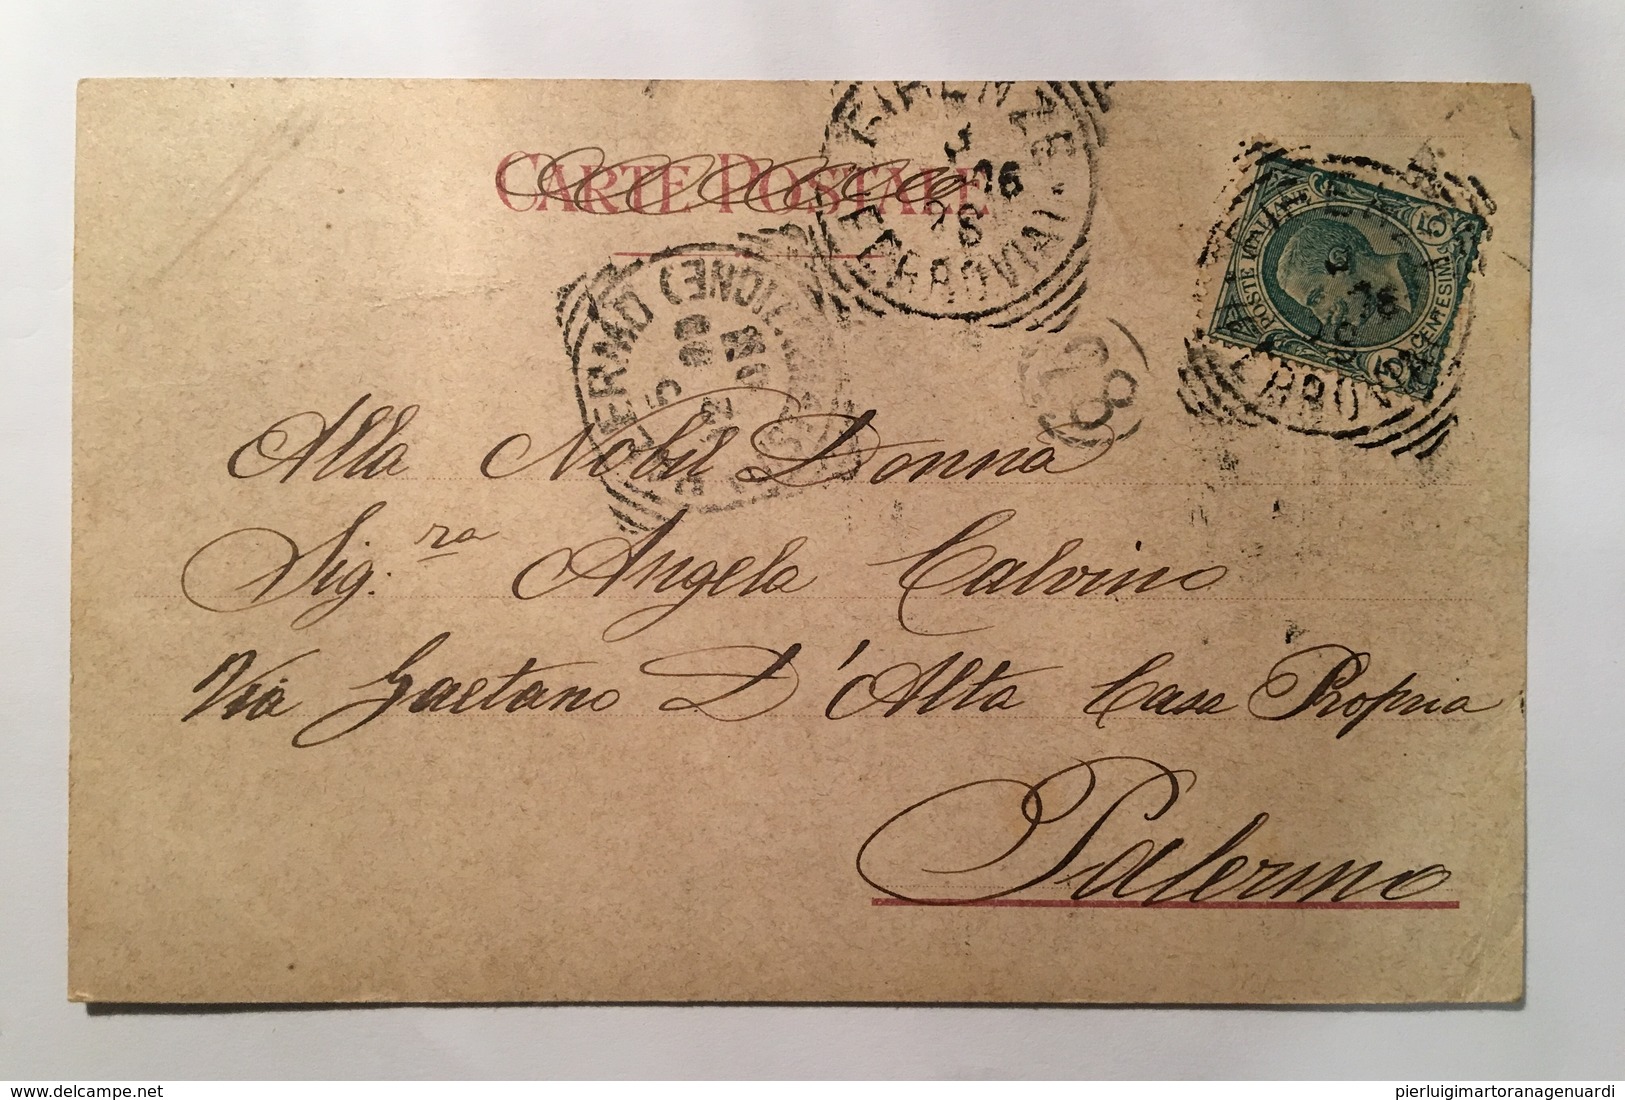 CARTE POSTALE
FIRENZE
FERROVIA
06
POSTE ITALIANE
5
CENTESIMI
5
PALERMO
28
Alla Nobil Donna
Sig.ra Angela Calvino
Via Gaetano D'Alta Casa Propria
Palermo
www.delcampe.net
pierluigimartoranagenuardi